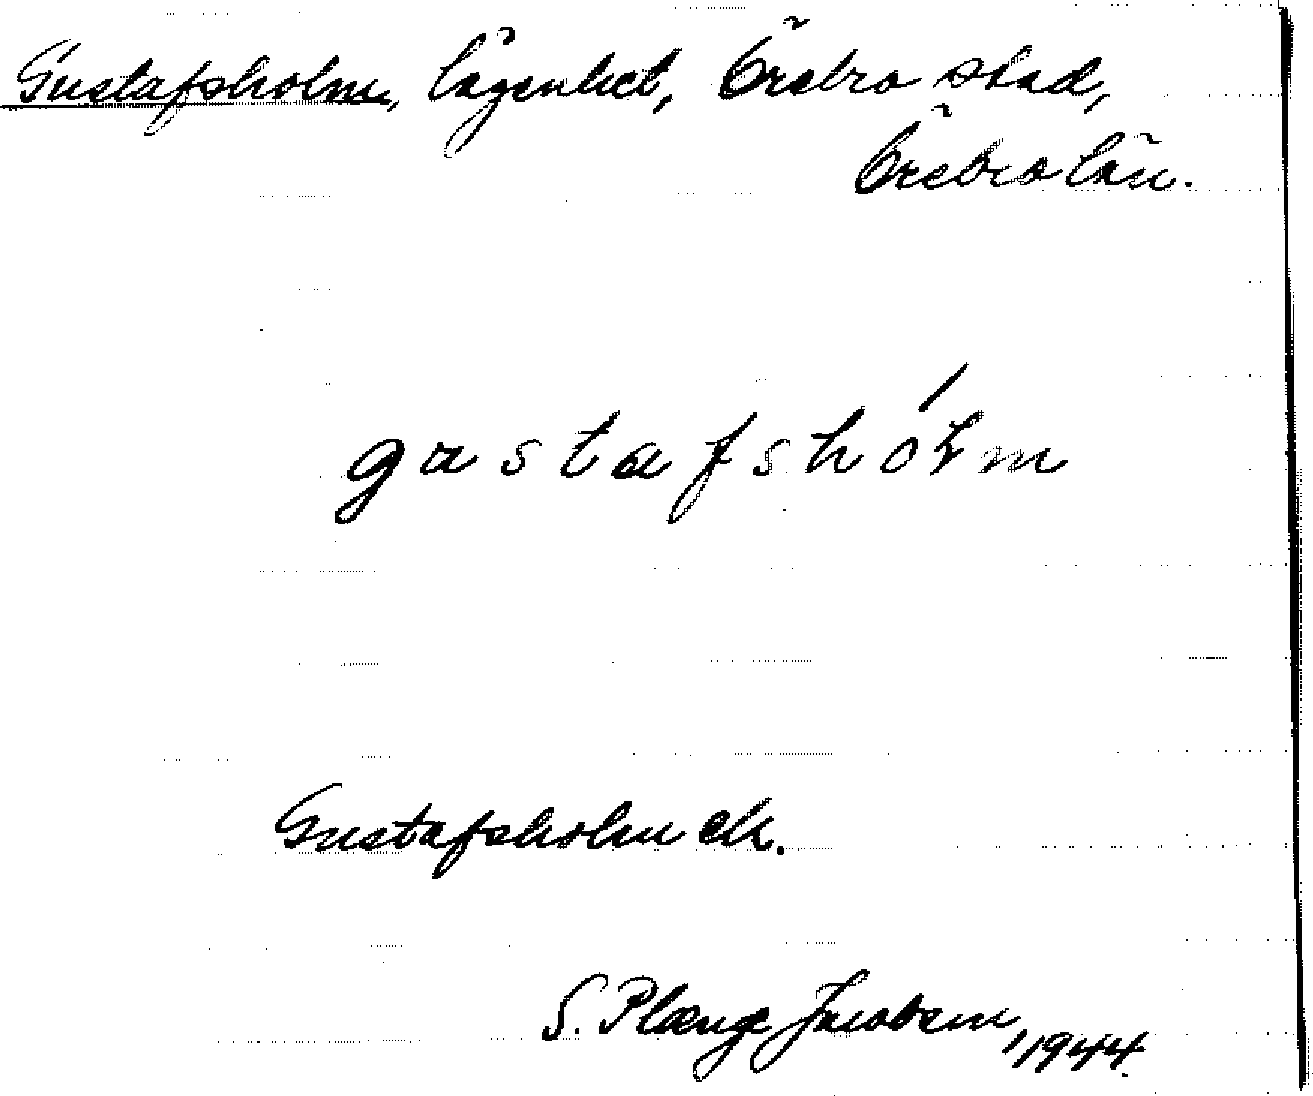 Gustafsholm, lägenhet, Örebro stad,
Örebro län.
gustafshólm
Gustafsholm ek.
S. Plænge Jacobsen, 1944.